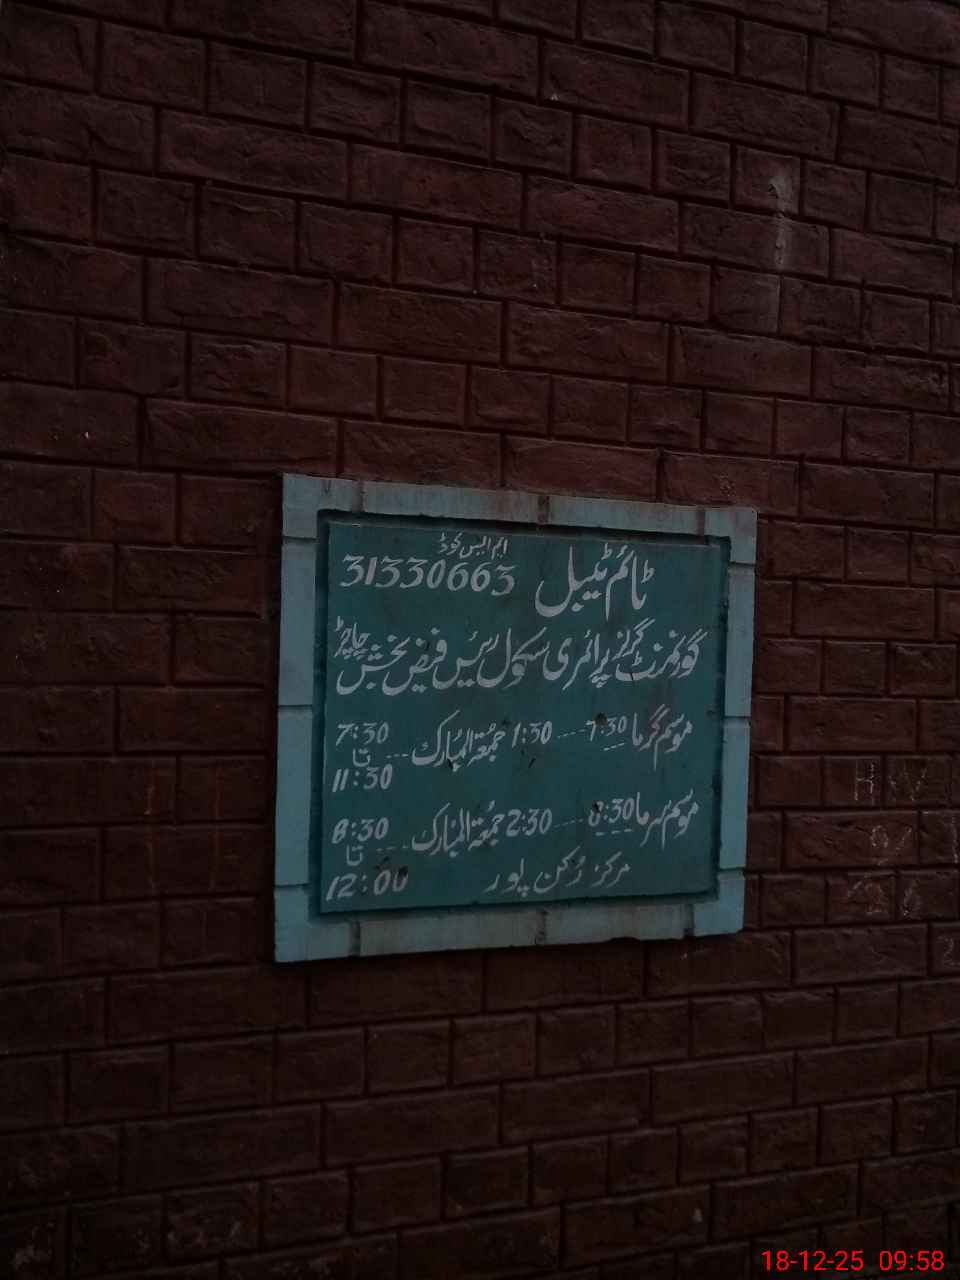 ایم ایس کوڈ
ٹائم ٹیبل 31330663
گورنمنٹ گرلز پرائمری سکول رئیس فیض بخش چاچڑ
موسم گرما 7:30 ---- 1:30 جمعۃ المبارک --- 7:30 تا 11:30
موسم سرما 8:30 ---- 2:30 جمعۃ المبارک --- 8:30 تا 12:00
مرکز رُکن پور
18-12-25 09:58